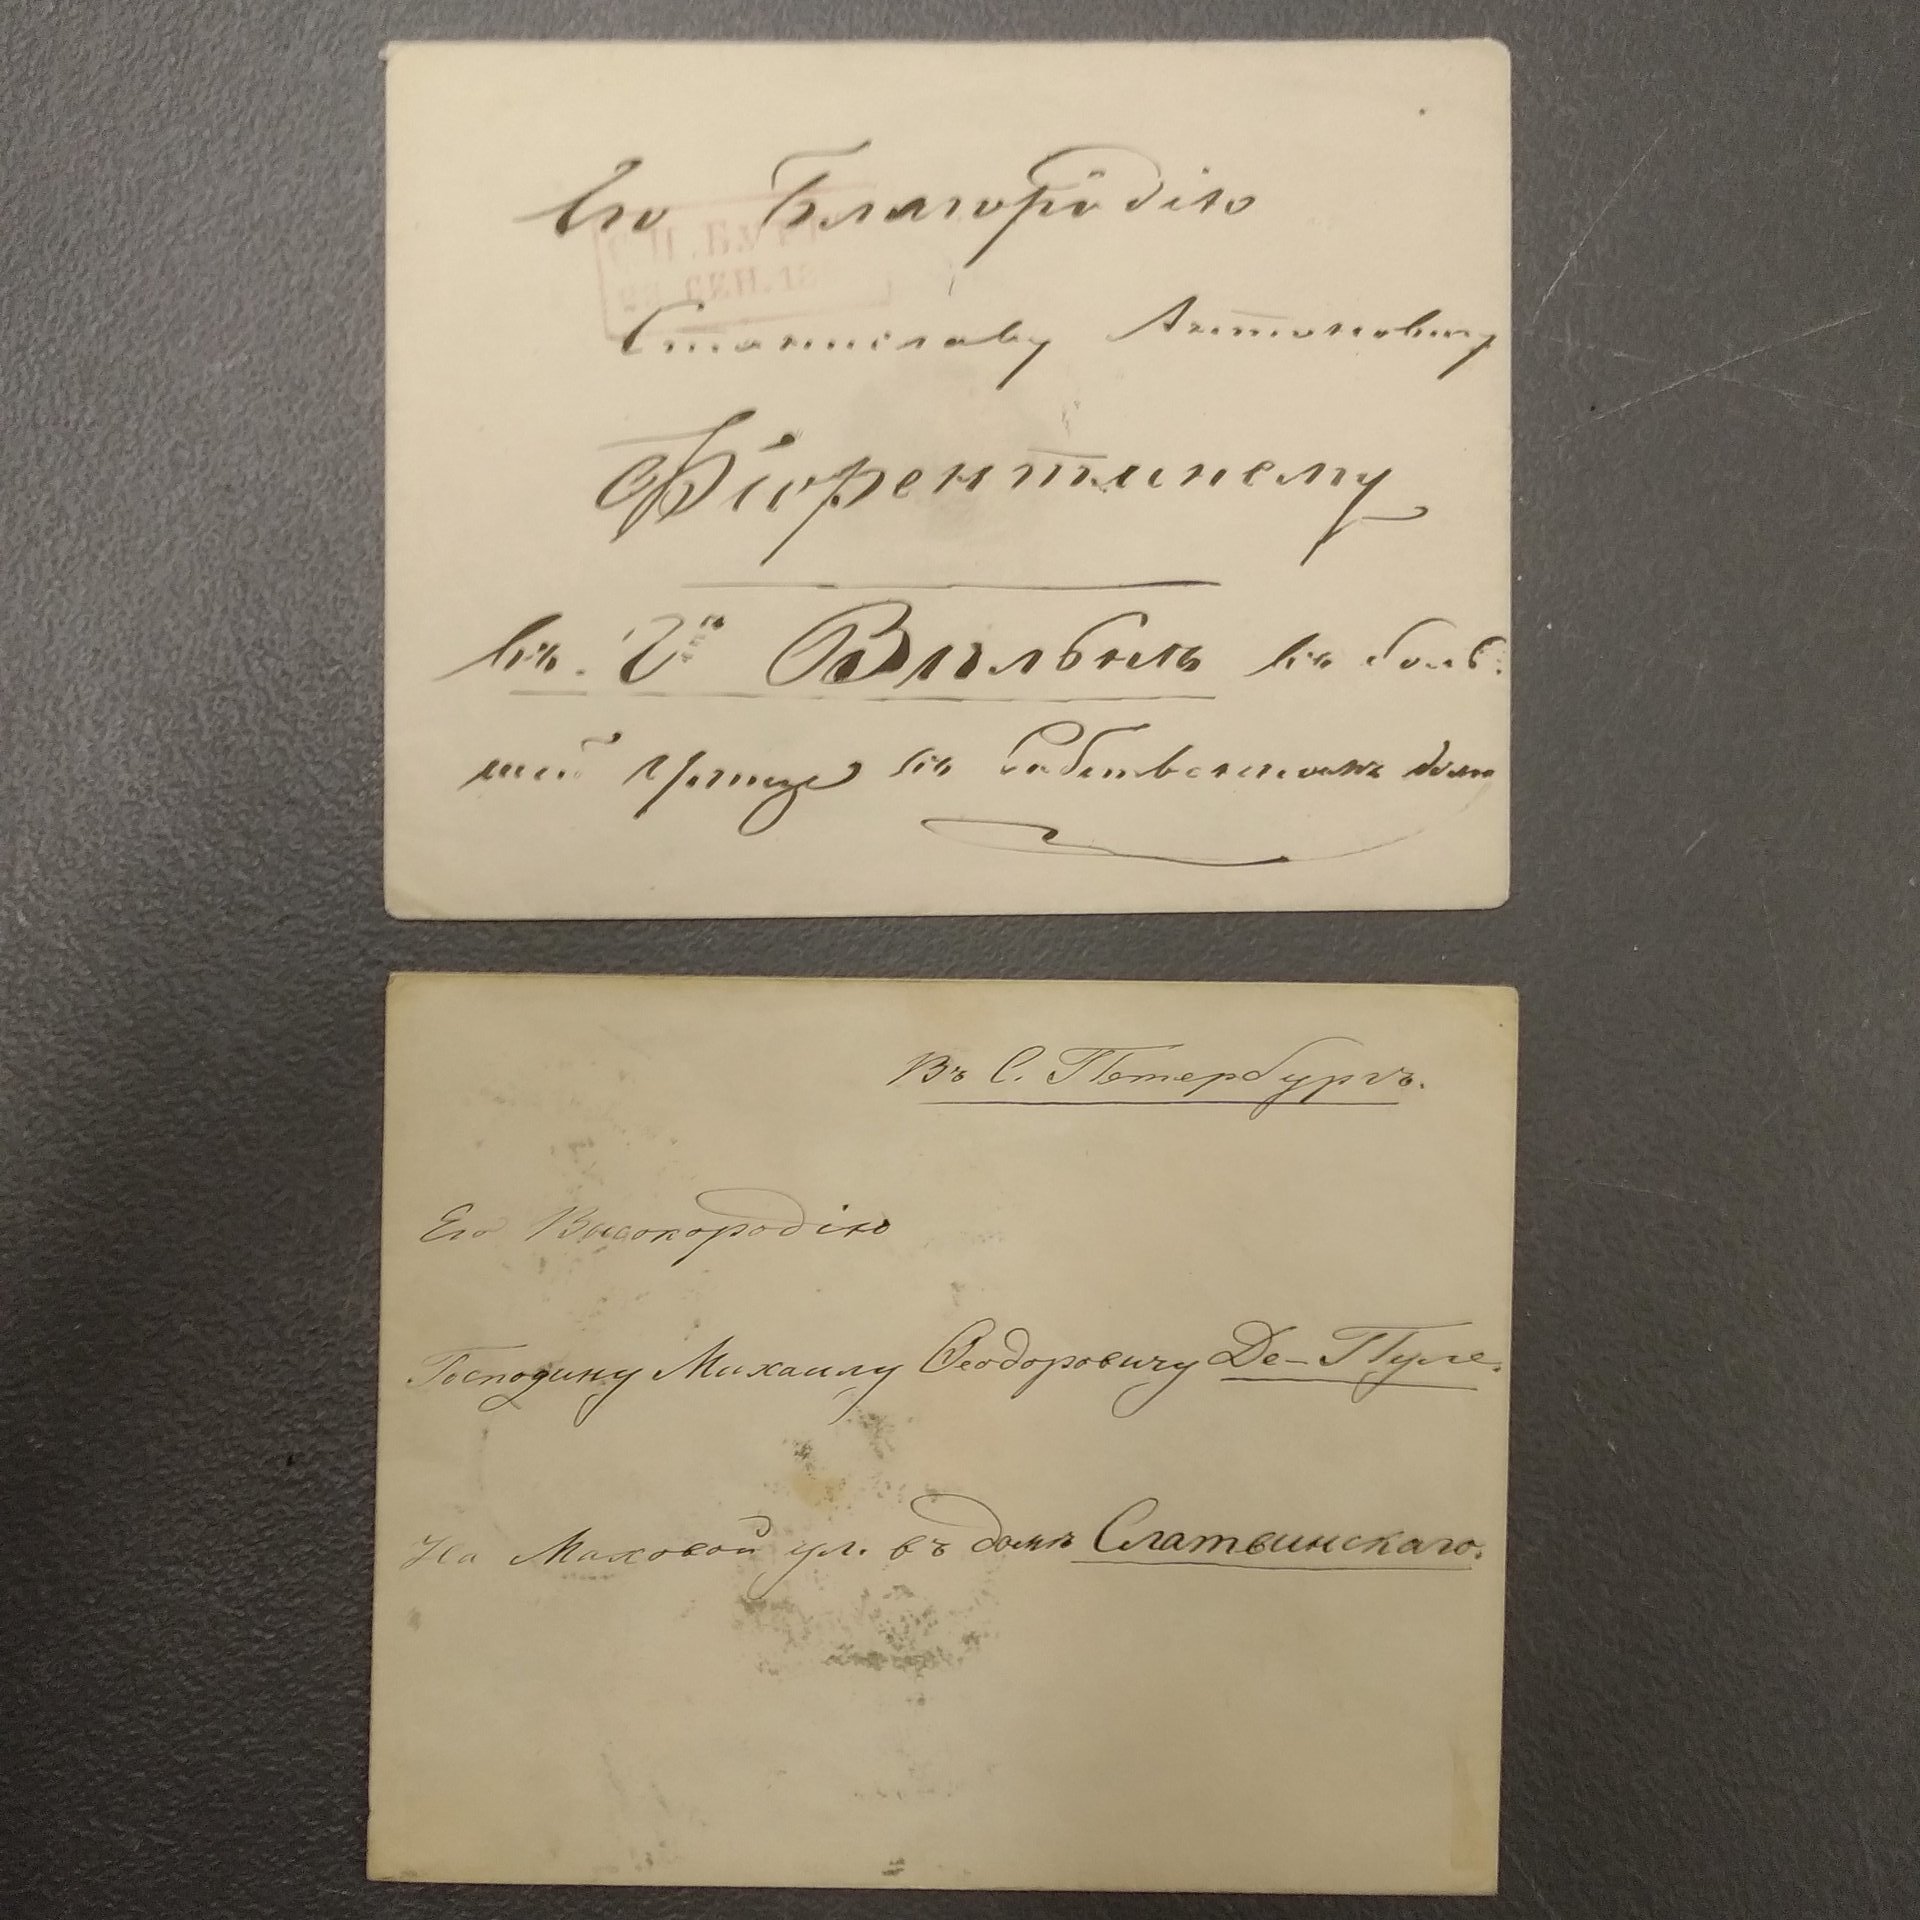 Его Благородію
С.П.БУРГ
СЕН. 18
Станиславу Антоновичу
Фіорентинему
въ Гдѣ Вильнѣ въ боль-
шей улице въ Собственномъ доме
Въ С. Петербургъ.
Его Высокородію
Господину Михаилу Ѳеодоровичу Де-Пуле.
На Маховой ул. въ домѣ Слатвинскаго.